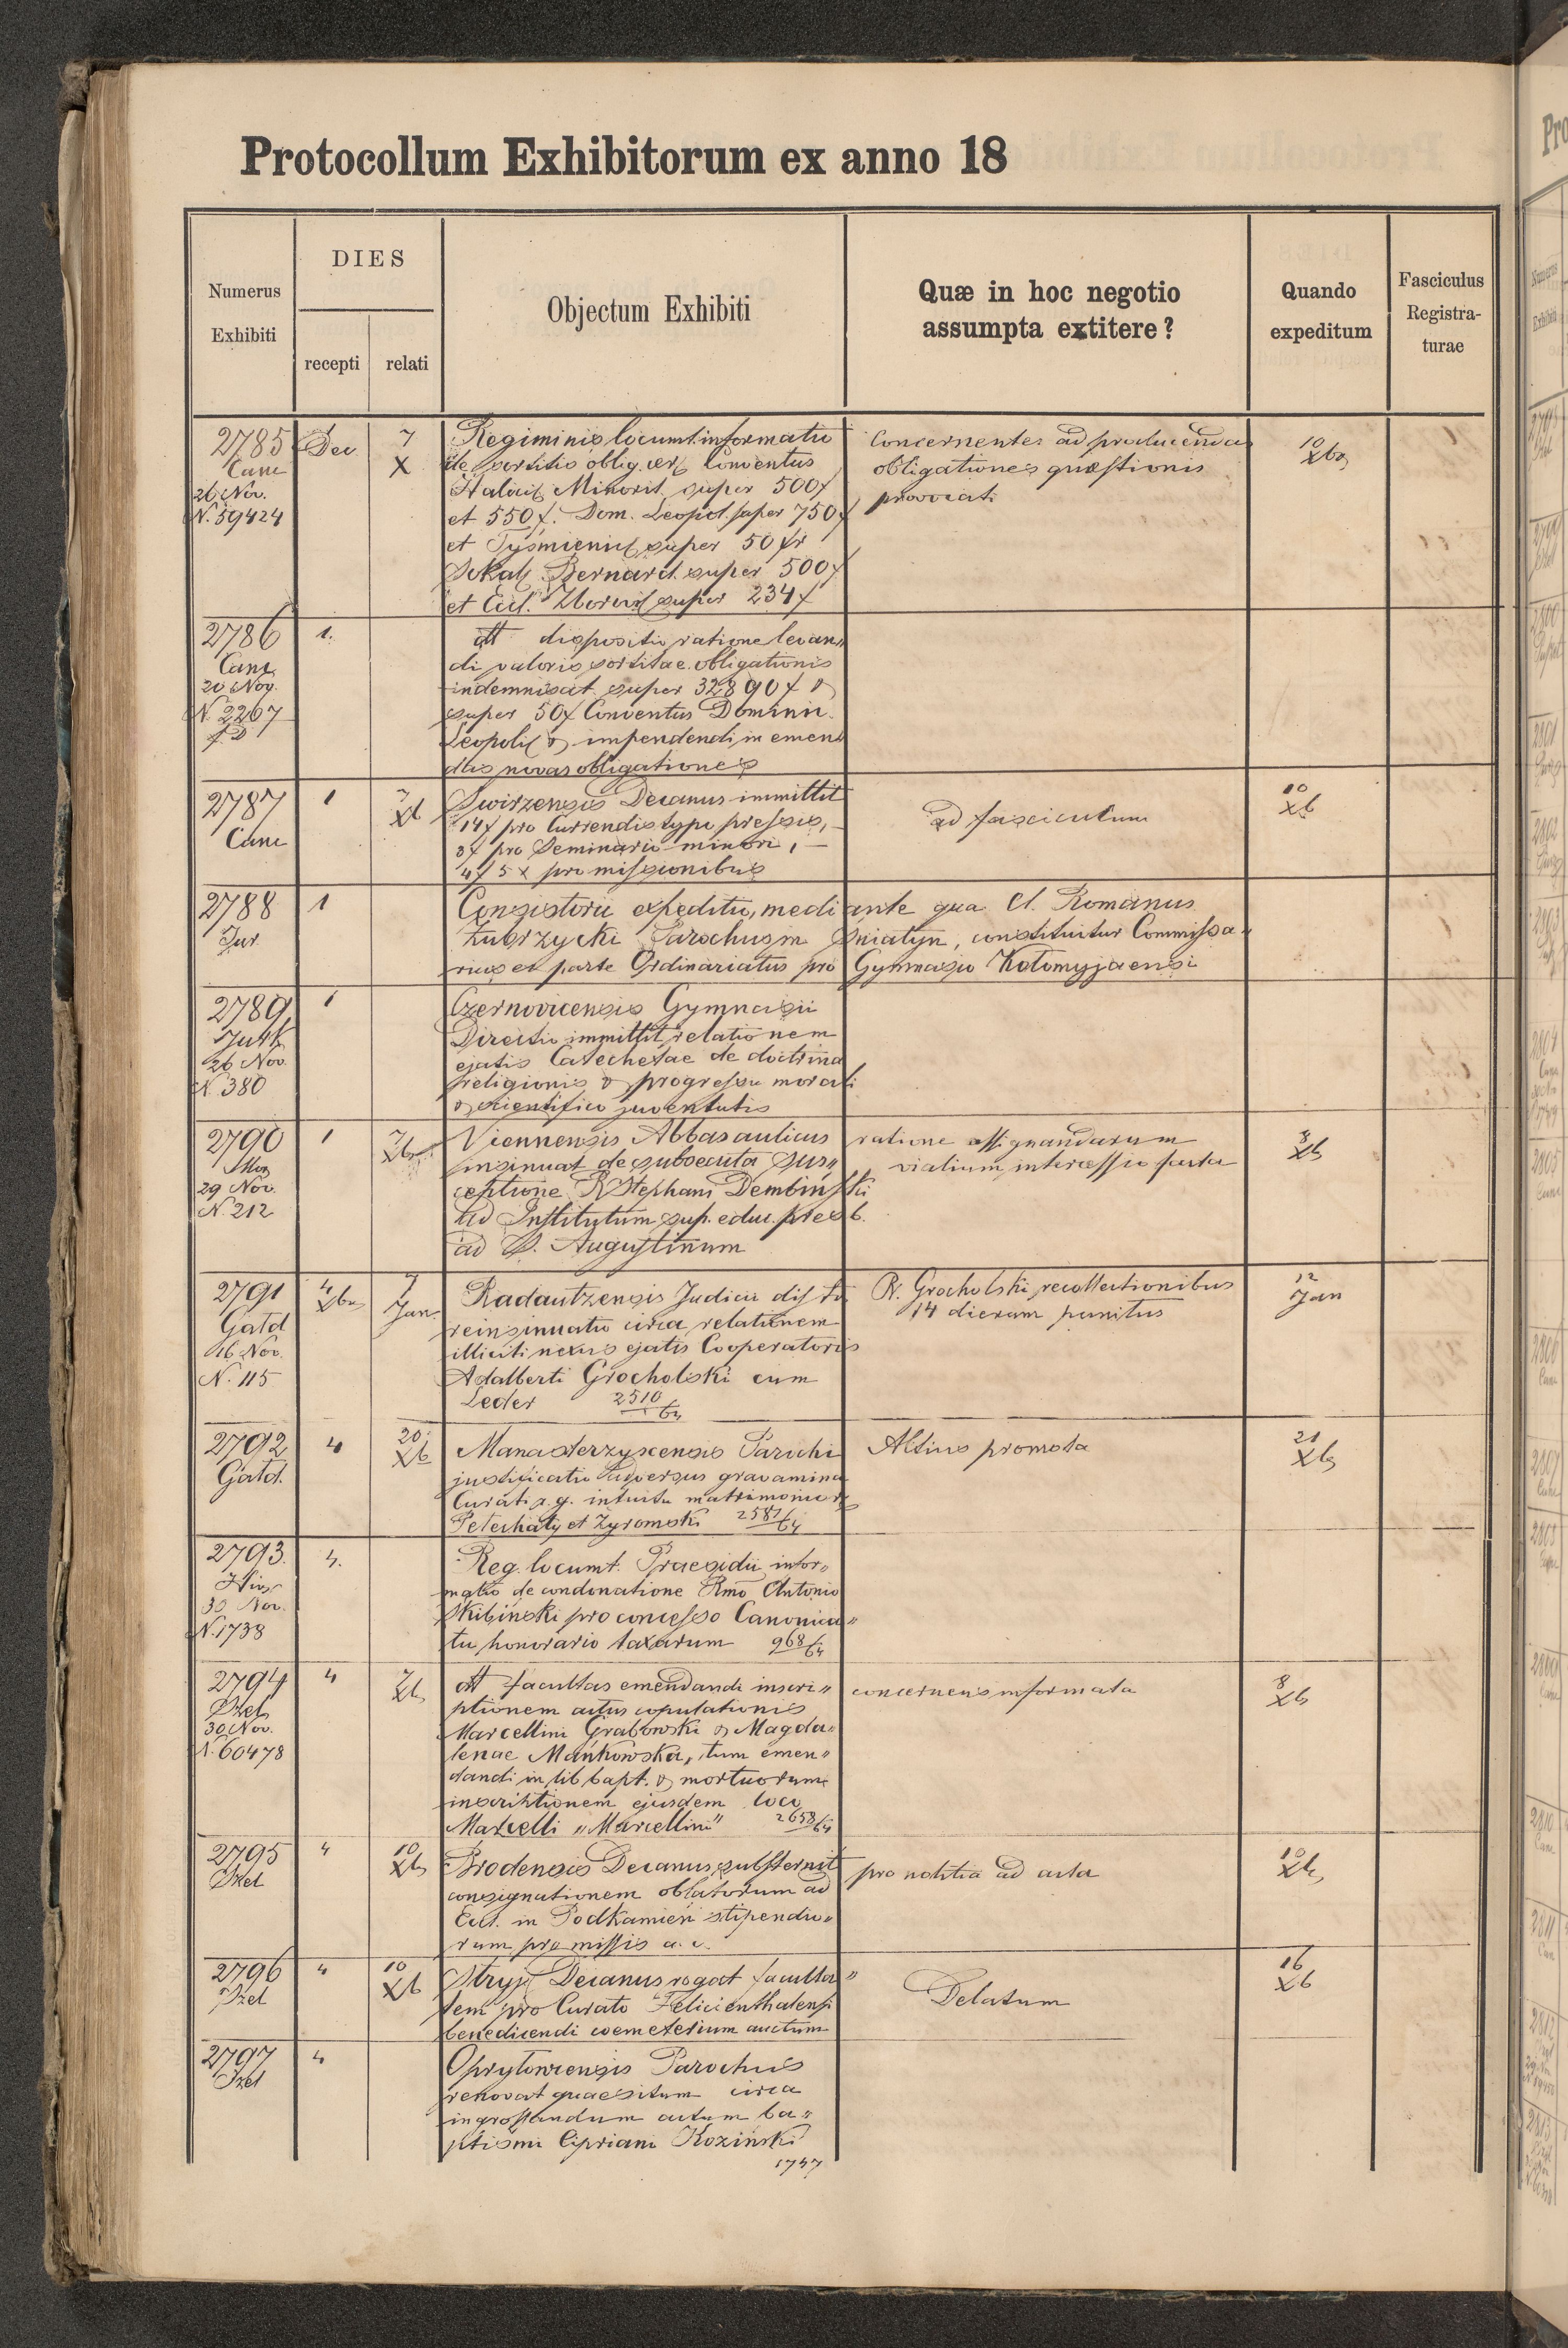 Protocollum Exhibitorum ex anno 18
Numerus
Exhibiti
DIES
recepti
relati
Objectum Exhibiti
Quæ in hoc negotio
assumpta extitere?
Quando
expeditum
Fasciculus
Registra-
turae
2785
Canc
26 Nov.
N. 59424
Dec
7
X
Regiminis locumt. informatio
de sortitis oblig.
Conventus
Halic Minorit. super 500f
et 550f. Dom. Leopol. super 750f
et Tysmienic super 50 fr
Sokal Bernard. super 500f
et Eccl. Zborov super 234f
Concernentes ad producendas
obligationes quæstionis
provocati
10
Xbr
2786
Canc
20 Nov.
N. 2267
1.
dtt dispositio ratione levan„
di valoris sortitae obligationis
indemnisat. super 32890f &
super 50f Conventus Dominic.
Leopol & impendendi in emen
das novas obligationes
2787
Canc
1
7
Xb
Swirzensis Decanus immittit
14f pro Currendis typo pressis, –
3f pro Seminario minori, –
4f 5x pro missionibus
ad fasciculum
10
Xb
2788
Jur
1
Consistorii expeditio, mediante qua Cl. Romanus
Zubrzycki Parochus in Sniatyn, constituitur Commissa„
rius ex parte Ordinariatus pro Gymnasio Kołomyjaensi
2789
26 Nov.
N 380
1
Czernovicensis Gymnasii
Directio immittit relationem
ejatis Catechetae de doctrina
religionis & progressu morali
& scientifico juventutis
2790
29 Nov.
N. 212
1
7
Xbr
Viennensis Abbas aulicus
insinuat de subsecuta sus„
ceptione R. Stephani Dembiński
ad Institutum sup. educ. presb.
ad S. Augustinum
ratione assignandarum
vialium intercessio facta
8
Xb
2791
Gatd
16 Nov.
N. 115
4
Xbr
7
Jan.
Radautzensis Judicii dist
reinsinuatio circa relationem
illiciti nexus ejatis Cooperatoris
Adalberti Grocholski cum
Leder 2510/64
R. Grocholski recollectionibus
14 dierum punitus
12
Jan
2792
Gatd.
4
20
Xb
Manasterzyscensis Parochi
justificatio adversus gravamina
Curati g. g. intuitu matrimonior
Petechaty et Zyromski 2581/64
Altius promota
21
Xb
2793.
30 Nov.
N. 1738
4.
Reg. locumt. Praesidii infor„
matio de condonatione Rmo Antonio
Skibinski pro concesso Canonica„
tu honorario taxarum 968/64
2794
Szel
30 Nov.
N. 60478
4
7
Xb
dtt facultas emendandi inscri„
ptionem actus copulationis
Marcellini Grabowski & Magda„
lenae Mańkowska, tum emen„
dandi in lib bapt. & mortuorum
inscriptionem ejusdem loco
Marcelli „Marcellini" 2658/64
concernens informata
8
Xb
2795
Szel
4
10
Xb
Brodensis Decanus substernit
consignationem oblatorum ad
Eccl. in Podkamień stipendio„
rum pro missis a. c.
pro notitia ad acta
10
Xb
2796
Szel
4
10
Xb
Stryj Decanus rogat faculta„
tem pro Curato Felicienthalensi
benedicendi coemeterium auctum
Delatum
16
Xb
2797
Szel
4
Opryłowcensis Parochus
renovat quaesitum circa
ingrossandum actum ba„
ptismi Cipriani Koziński
1747